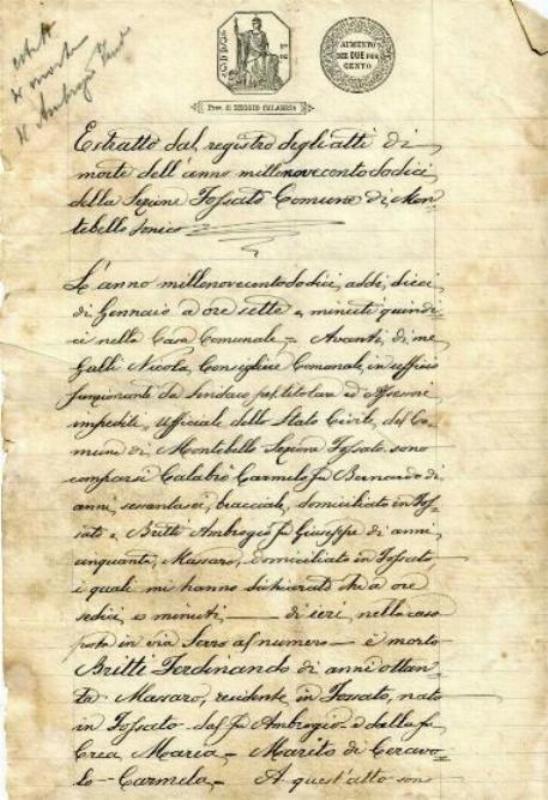 estratto
di morte
di Ambrogio
AUMENTO
DEL DUE PER
CENTO
Prov. di REGGIO CALABRIA
Estratto dal registro degli atti di
morte dell'anno millenovecentododici
della Sezione Fossato Comune di Mon-
tebello Jonico
L'anno millenovecentododici, addì dieci
di Gennaio a ore sette e minuti quindi-
ci nella Casa Comunale = Avanti di me
Galli Nicola, Consigliere Comunale, in ufficio
funzionante da Sindaco pel titolare ed Assessori
impediti, Ufficiale dello Stato Civile del Co-
mune di Montebello Sezione Fossato sono
comparsi Calabrò Carmelo fu Bernardo di
anni sessantasei, bracciale, domiciliato in Fos-
sato e Britti Ambrogio fu Giuseppe di anni
cinquanta, Massaro, domiciliato in Fossato,
i quali mi hanno dichiarato che a ore
sedici e minuti — di ieri, nella casa
posta in via Serro al numero — è morto
Britti Ferdinando di anni ottan-
ta Massaro, residente in Fossato, nato
in Fossato dal fu Ambrogio e dalla fu
Crea Maria - Marito di Ceravo-
lo Carmela - A quest'atto sono